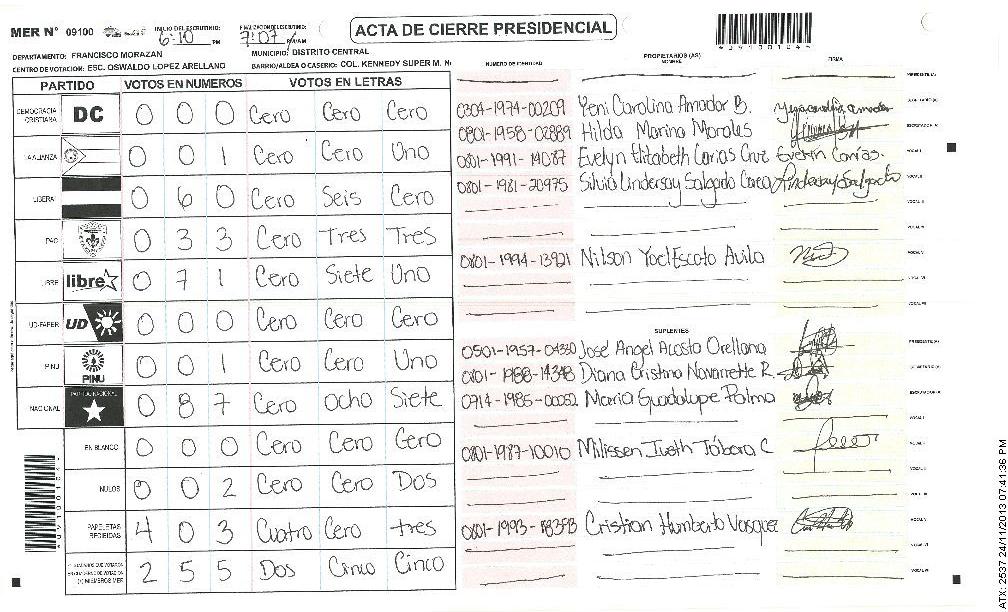 MER N° 09100
INICIO DEL ESCRUTINIO: 6:10 PM
FINALIZACION ESCRUTINIO: 7:07 PM/AM
ACTA DE CIERRE PRESIDENCIAL
DEPARTAMENTO: FRANCISCO MORAZAN
MUNICIPIO: DISTRITO CENTRAL
CENTRO DE VOTACION: ESC. OSWALDO LOPEZ ARELLANO
BARRIO/ALDEA O CASERIO: COL. KENNEDY SUPER M. N
PARTIDO VOTOS EN NUMEROS VOTOS EN LETRAS
DEMOCRACIA CRISTIANA DC 0 0 0 Cero Cero Cero
LA ALIANZA 0 0 1 Cero Cero Uno
LIBERAL 0 6 0 Cero Seis Cero
PAC 0 3 3 Cero Tres Tres
LIBRE libre 0 7 1 Cero Siete Uno
UD-FAPER UD 0 0 0 Cero Cero Cero
PINU PINU 0 0 1 Cero Cero Uno
NACIONAL PARTIDO NACIONAL 0 8 7 Cero ocho Siete
EN BLANCO 0 0 0 Cero Cero Cero
NULOS 0 0 2 Cero Cero Dos
PAPELETAS RECIBIDAS 4 0 3 Cuatro Cero tres
(+) MIEMBROS MER 2 5 5 Dos Cinco Cinco
NUMERO DE IDENTIDAD PROPIETARIOS (AS) NOMBRE FIRMA
PRESIDENTE (A)
0304-1974-00209 Yeni Carolina Amador B. SECRETARIO (A)
0801-1958-02889 Hilda Marina Morales ESCRUTADOR (A)
0801-1991-14087 Evelyn Elizabeth Carias Cruz Evelin Carías. VOCAL I
0801-1981-20975 Silvia Lindersay Salgado Cerea Lindersay Salgado VOCAL II
VOCAL III
VOCAL IV
0801-1994-13921 Nilson Yoel Escoto Avila VOCAL V
VOCAL VI
VOCAL VII
SUPLENTES
0501-1957-04330 José Angel Acosta Orellana PRESIDENTE (A)
0801-1988-14348 Diana Cristina Navarrette R. SECRETARIO (A)
0714-1985-00052 Maria Guadalupe Palma ESCRUTADOR (A)
VOCAL I
0801-1987-10010 Milissen Iveth Tábora C VOCAL II
VOCAL III
VOCAL IV
0801-1993-18393 Cristian Humberto Vasquez VOCAL V
VOCAL VI
VOCAL VII
ATX: 2537 24/11/2013 07:41:36 PM